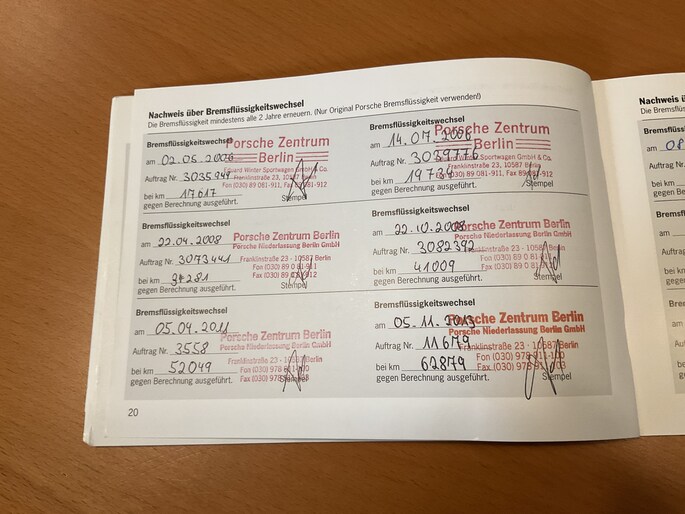 Nachweis über Bremsflüssigkeitswechsel
Die Bremsflüssigkeit mindestens alle 2 Jahre erneuern. (Nur Original Porsche Bremsflüssigkeit verwenden!)
Bremsflüssigkeitswechsel
am 02.05.2006
Auftrag Nr. 3035944
bei km 17617
gegen Berechnung ausgeführt.
Porsche Zentrum
Berlin
Eduard Winter Sportwagen GmbH & Co.
Franklinstraße 23, 10587 Berlin
Fon (030) 89 081-911, Fax 89 081-912
Stempel
Bremsflüssigkeitswechsel
am 14.07.2006
Auftrag Nr. 3039776
bei km 19734
gegen Berechnung ausgeführt.
Porsche Zentrum
Berlin
Eduard Winter Sportwagen GmbH & Co.
Franklinstraße 23, 10587 Berlin
Fon (030) 89 081-911, Fax 89 081-912
Stempel
Bremsflüssigkeitswechsel
am 22.04.2008
Auftrag Nr. 3073441
bei km 37281
gegen Berechnung ausgeführt.
Porsche Zentrum Berlin
Porsche Niederlassung Berlin GmbH
Franklinstraße 23 · 10587 Berlin
Fon (030) 89 0 81-911
Fax (030) 89 0 81-912
Stempel
Bremsflüssigkeitswechsel
am 22.10.2008
Auftrag Nr. 3082392
bei km 41009
gegen Berechnung ausgeführt.
Porsche Zentrum Berlin
Porsche Niederlassung Berlin GmbH
Franklinstraße 23 · 10587 Berlin
Fon (030) 89 0 81
Fax (030) 89 0 81
Stempel
Bremsflüssigkeitswechsel
am 05.04.2011
Auftrag Nr. 3558
bei km 52049
gegen Berechnung ausgeführt.
Porsche Zentrum Berlin
Porsche Niederlassung Berlin GmbH
Franklinstraße 23 · 10587 Berlin
Fon (030) 978 911-100
Fax (030) 978
Stempel
Bremsflüssigkeitswechsel
am 05.11.2013
Auftrag Nr. 11679
bei km 62879
gegen Berechnung ausgeführt.
Porsche Zentrum Berlin
Porsche Niederlassung Berlin GmbH
Franklinstraße 23 · 10587 Berlin
Fon (030) 978 911-100
Fax (030) 978 911-103
Stempel
20
Nachweis ü
Die Bremsflüssi
Bremsflüssi
am 08
Auftrag Nr.
bei km
gegen Be